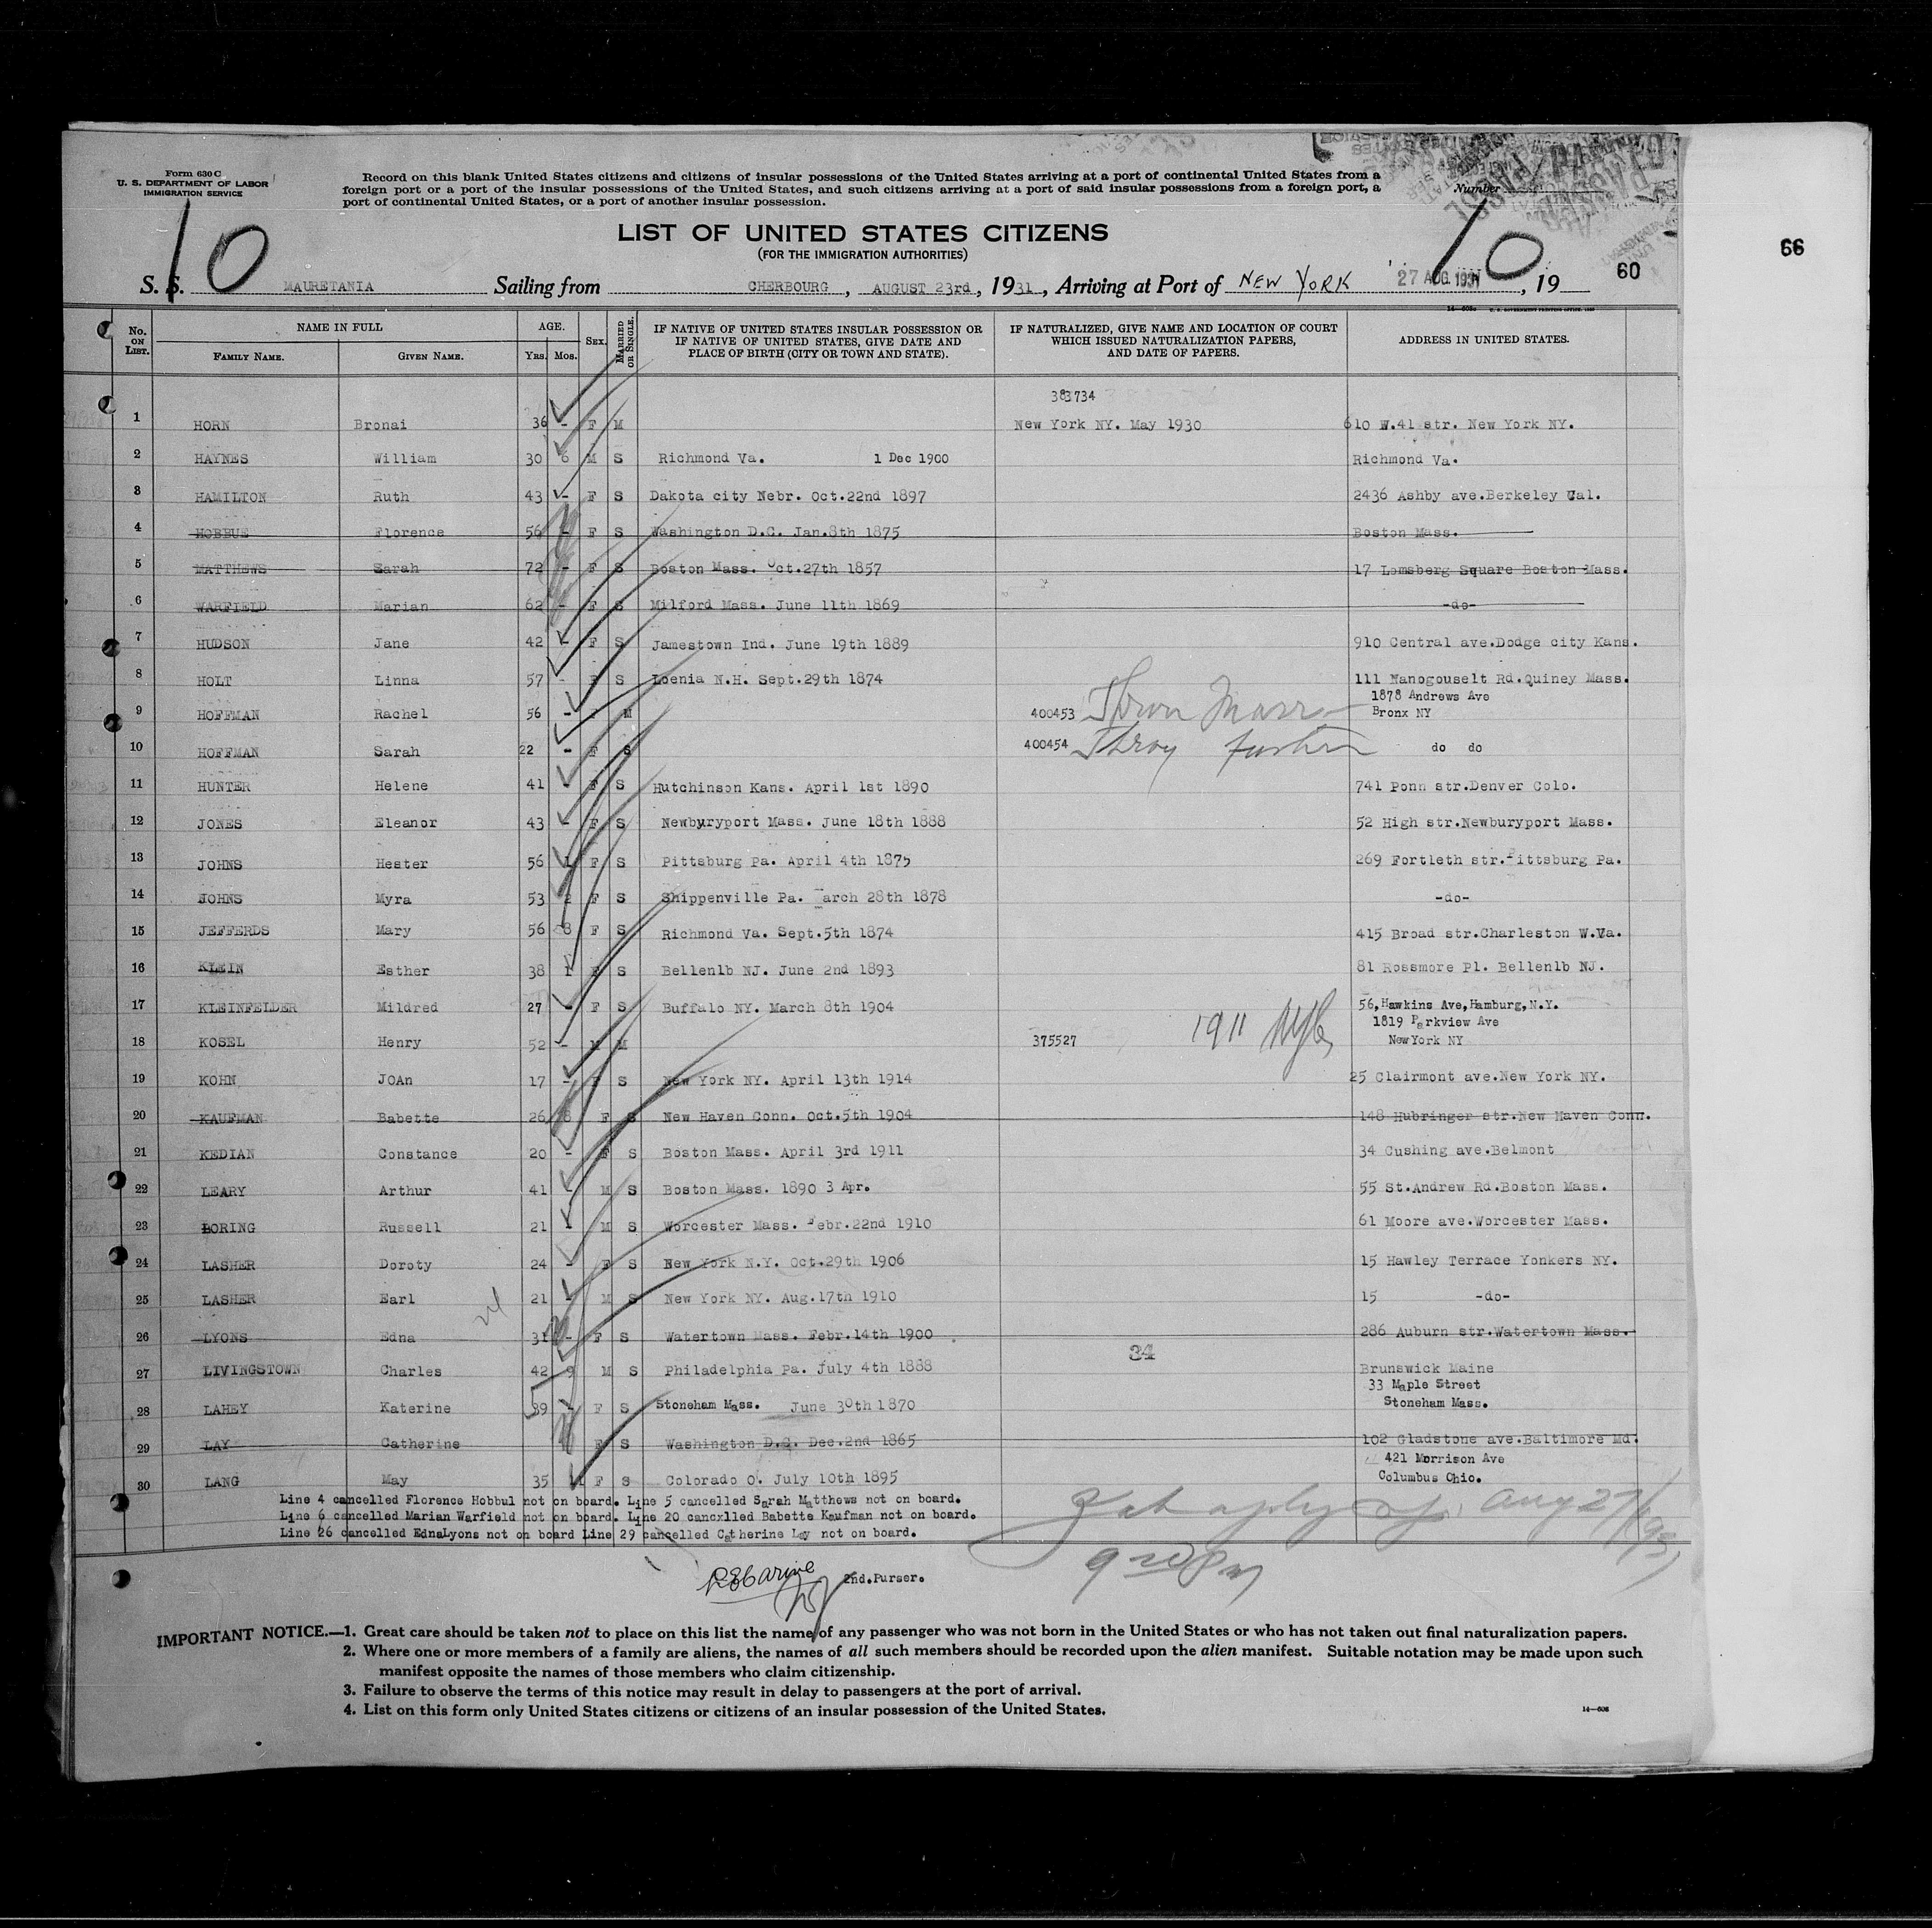 Form 630 C
U. S. DEPARTMENT OF LABOR
IMMIGRATION SERVICE
Record on this blank United States citizens and citizens of insular possessions of the United States arriving at a port of continental United States from a
foreign port or a port of the insular possessions of the United States, and such citizens arriving at a port of said insular possessions from a foreign port, a
port of continental United States, or a port of another insular possession.
Number
10
10
LIST OF UNITED STATES CITIZENS
(FOR THE IMMIGRATION AUTHORITIES)
66
60
S. S. MAURETANIA Sailing from CHERBOURG, AUGUST 23rd, 1931, Arriving at Port of NEW YORK 27 AUG 1931, 19
14—608
No. ON LIST. NAME IN FULL AGE. Sex. MARRIED OR SINGLE. IF NATIVE OF UNITED STATES INSULAR POSSESSION OR IF NATIVE OF UNITED STATES, GIVE DATE AND PLACE OF BIRTH (CITY OR TOWN AND STATE). IF NATURALIZED, GIVE NAME AND LOCATION OF COURT WHICH ISSUED NATURALIZATION PAPERS, AND DATE OF PAPERS. ADDRESS IN UNITED STATES.
FAMILY NAME. GIVEN NAME. Yrs. Mos.
383734
1 HORN Bronai 36 - F M New York NY. May 1930 610 W.41 str. New York NY.
2 HAYNES William 30 6 M S Richmond Va. 1 Dec 1900 Richmond Va.
3 HAMILTON Ruth 43 - F S Dakota city Nebr. Oct.22nd 1897 2436 Ashby ave.Berkeley Cal.
4 HOBBUE Florence 56 - F S Washington D.C. Jan.8th 1875 Boston Mass.
5 MATTHEWS Sarah 72 - F S Boston Mass. Oct.27th 1857 17 Lomsberg Square Boston Mass.
6 WARFIELD Marian 62 - F S Milford Mass. June 11th 1869 -do-
7 HUDSON Jane 42 - F S Jamestown Ind. June 19th 1889 910 Central ave.Dodge city Kans.
8 HOLT Linna 57 - F S Loenia N.H. Sept.29th 1874 111 Nanogouselt Rd.Quiney Mass.
1878 Andrews Ave
9 HOFFMAN Rachel 56 - F M 400453 Bronx NY
10 HOFFMAN Sarah 22 - F S 400454 do do
11 HUNTER Helene 41 - F S Hutchinson Kans. April 1st 1890 741 Ponn str.Denver Colo.
12 JONES Eleanor 43 - F S Newburyport Mass. June 18th 1888 52 High str.Newburyport Mass.
13 JOHNS Hester 56 1 F S Pittsburg Pa. April 4th 1875 269 Fortleth str.Pittsburg Pa.
14 JOHNS Myra 53 2 F S Shippenville Pa. March 28th 1878 -do-
15 JEFFERDS Mary 56 8 F S Richmond Va. Sept.5th 1874 415 Broad str.Charleston W.Va.
16 KLEIN Esther 38 1 F S Bellenlb NJ. June 2nd 1893 81 Rossmore Pl. Bellenlb NJ.
17 KLEINFELDER Mildred 27 - F S Buffalo NY. March 8th 1904 56,Hawkins Ave,Hamburg,N.Y.
1819 Parkview Ave
18 KOSEL Henry 52 - M M 375527 1911 NewYork NY
19 KOHN JOAn 17 - F S New York NY. April 13th 1914 25 Clairmont ave.New York NY.
20 KAUFMAN Babette 26 8 F S New Haven Conn. Oct.5th 1904 148 Hubringer str.New Haven Conn.
21 KEDIAN Constance 20 - F S Boston Mass. April 3rd 1911 34 Cushing ave.Belmont
22 LEARY Arthur 41 - M S Boston Mass. 1890 3 Apr. 55 St.Andrew Rd.Boston Mass.
23 LORING Russell 21 - M S Worcester Mass. Febr.22nd 1910 61 Moore ave.Worcester Mass.
24 LASHER Doroty 24 - F S New York N.Y. Oct.29th 1906 15 Hawley Terrace Yonkers NY.
25 LASHER Earl 21 - M S New York NY. Aug.17th 1910 15 -do-
26 LYONS Edna 31 - F S Watertown Mass. Febr.14th 1900 286 Auburn str.Watertown Mass.
34
27 LIVINGSTOWN Charles 42 9 M S Philadelphia Pa. July 4th 1888 Brunswick Maine
33 Maple Street
28 LAHEY Katerine 39 - F S Stoneham Mass. June 30th 1870 Stoneham Mass.
29 LAY Catherine F S Washington D.C. Dec.2nd 1865 102 Gladstone ave.Baltimore Md.
421 Morrison Ave
30 LANG May 35 1 F S Colorado O. July 10th 1895 Columbus Ohio.
Line 4 cancelled Florence Hobbul not on board. Line 5 cancelled Sarah Matthews not on board.
Line 6 cancelled Marian Warfield not on board. Line 20 cancxlled Babette Kaufman not on board.
Line 26 cancelled EdnaLyons not on board Line 29 cancelled Catherine Lay not on board.
Aug 27/1931
2nd.Purser.
IMPORTANT NOTICE.—1. Great care should be taken not to place on this list the name of any passenger who was not born in the United States or who has not taken out final naturalization papers.
2. Where one or more members of a family are aliens, the names of all such members should be recorded upon the alien manifest. Suitable notation may be made upon such
manifest opposite the names of those members who claim citizenship.
3. Failure to observe the terms of this notice may result in delay to passengers at the port of arrival.
4. List on this form only United States citizens or citizens of an insular possession of the United States.
14—608